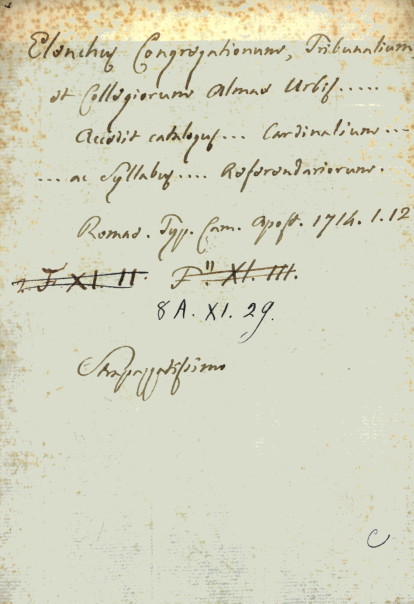 Elenchus Congregationum, Tribunalium,
et Collegiorum Almae Urbis.....
Accedit catalogus... Cardinalium...
... ac Syllabus.... Referendariorum.
Romae. Typ. Cam. Apost. 1714. 1.12
F XI. II. F". XI. III.
8 A. XI. 29.
Strapazzatissimo
C